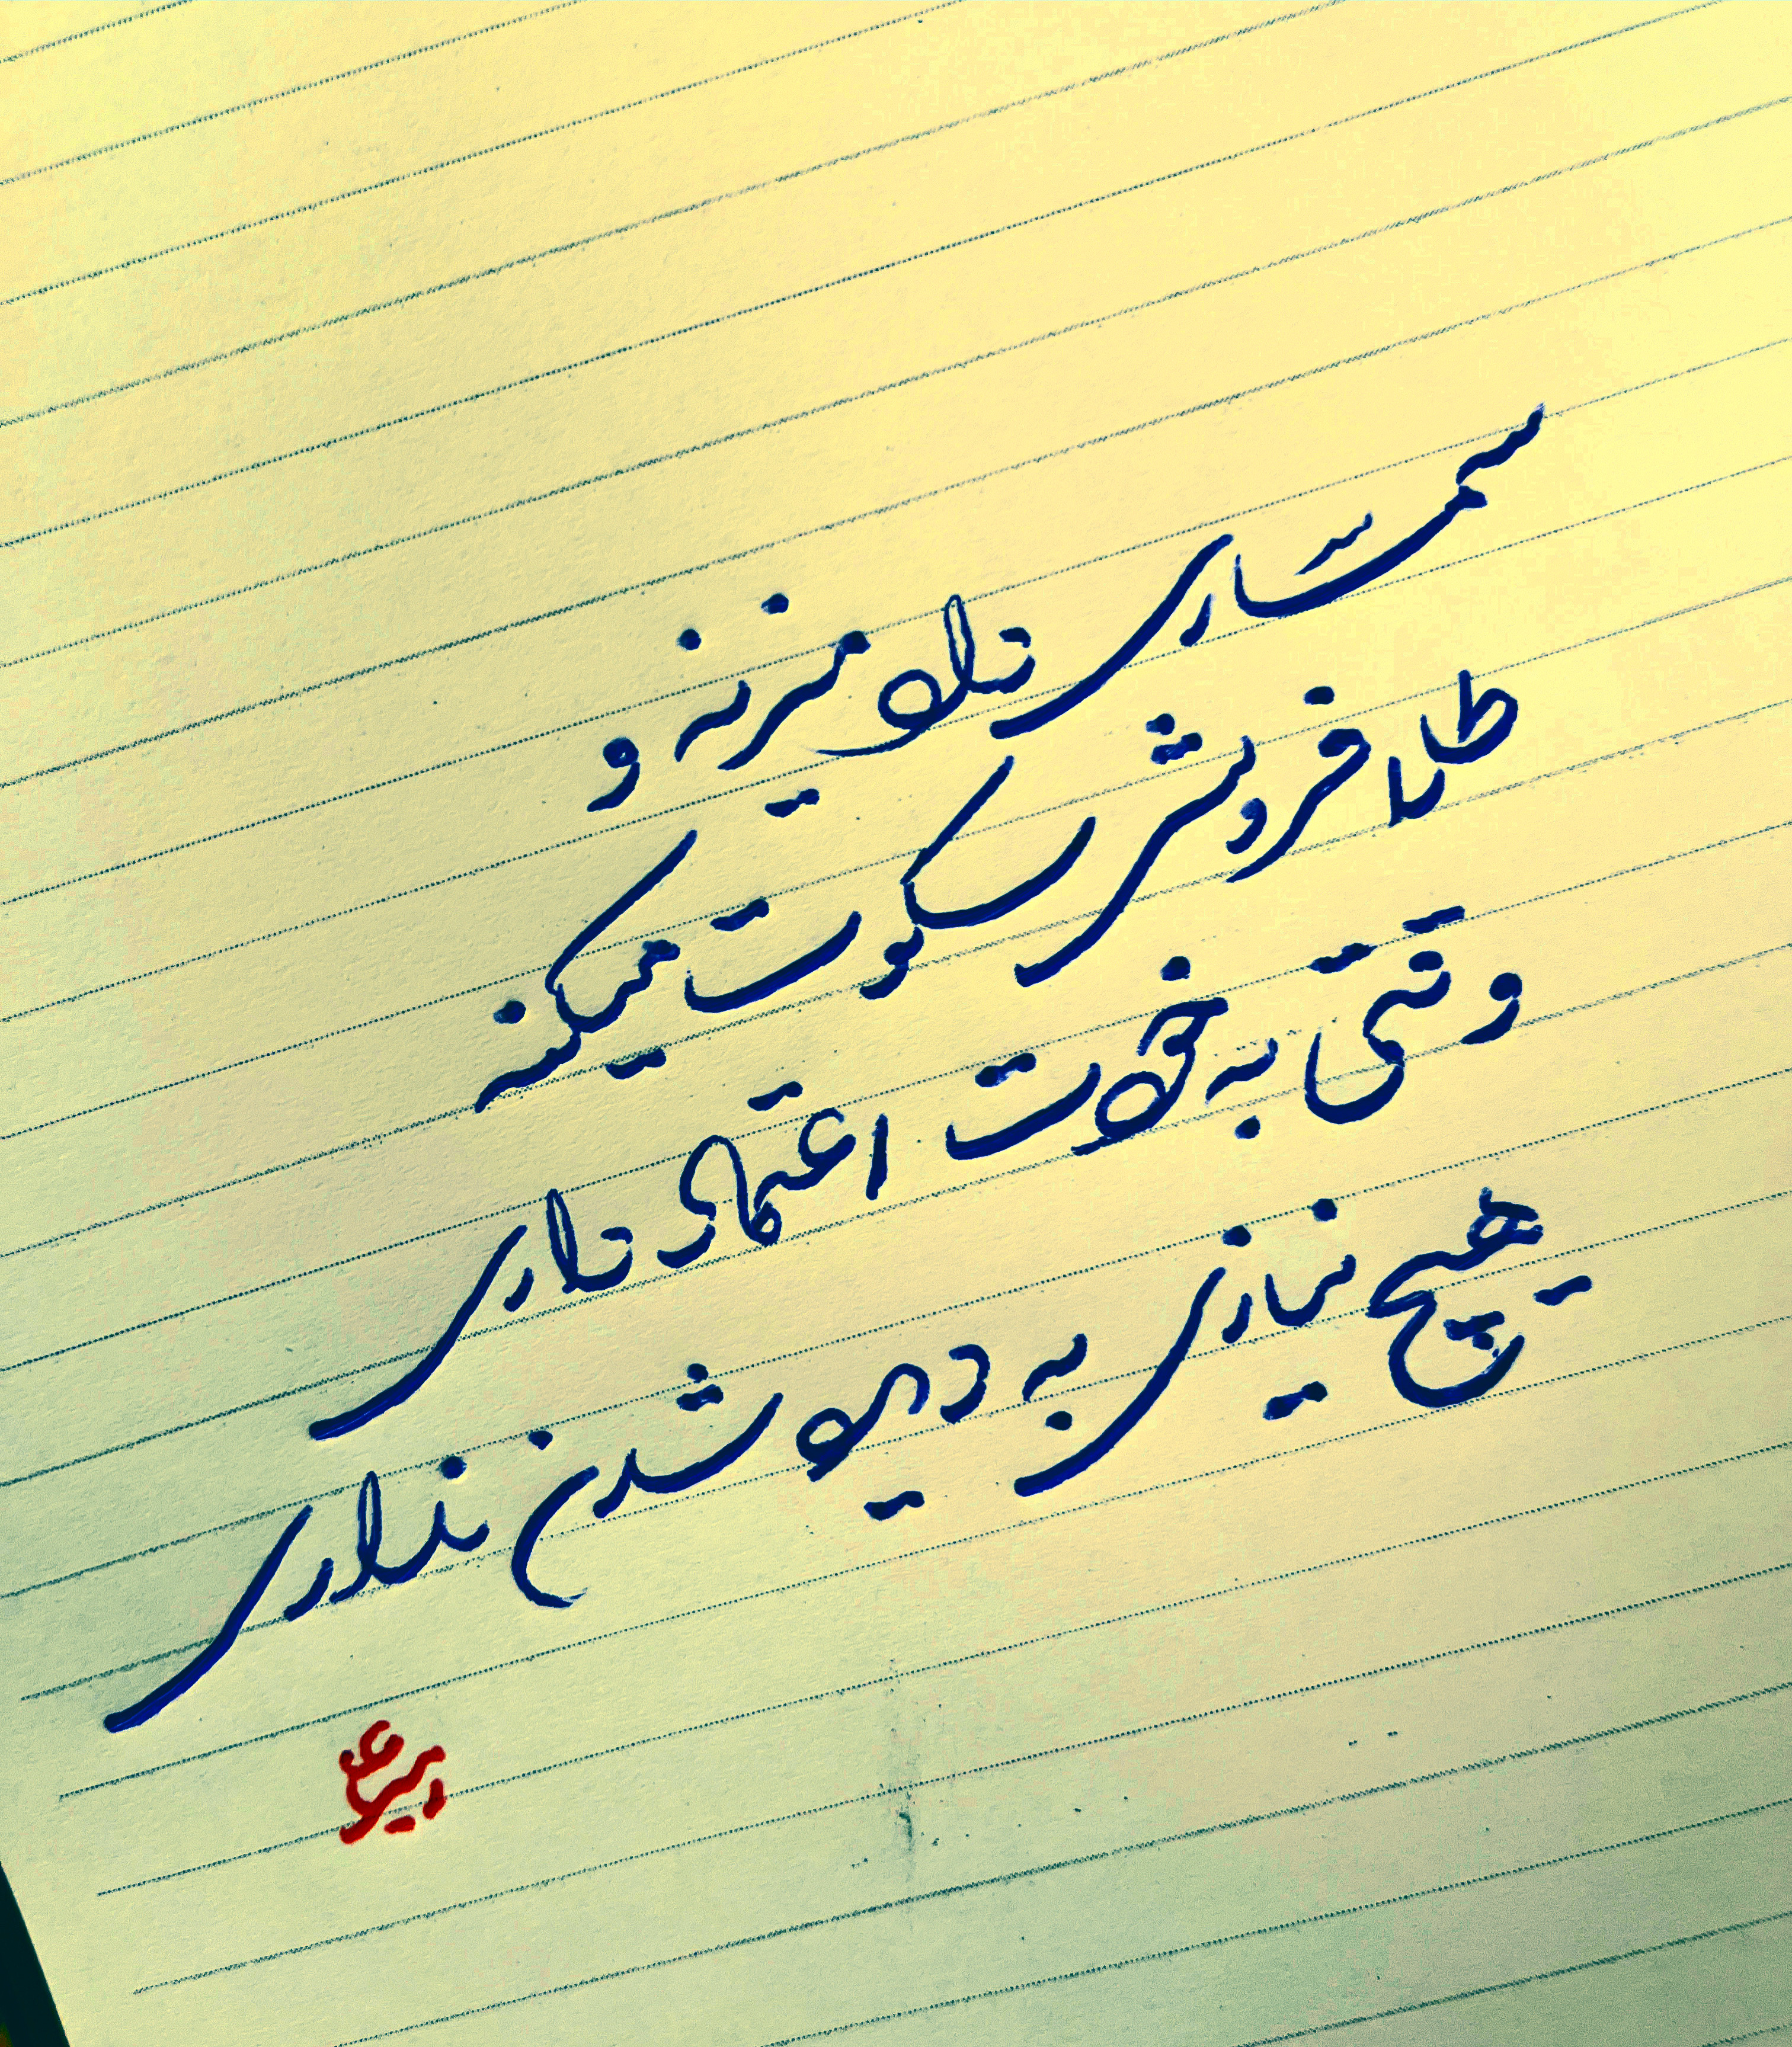 سمساری داد میزنه و
طلا فروش سکوت میکنه
وقتی به خودت اعتماد داری
هیچ نیازی به دیده شدن نداری